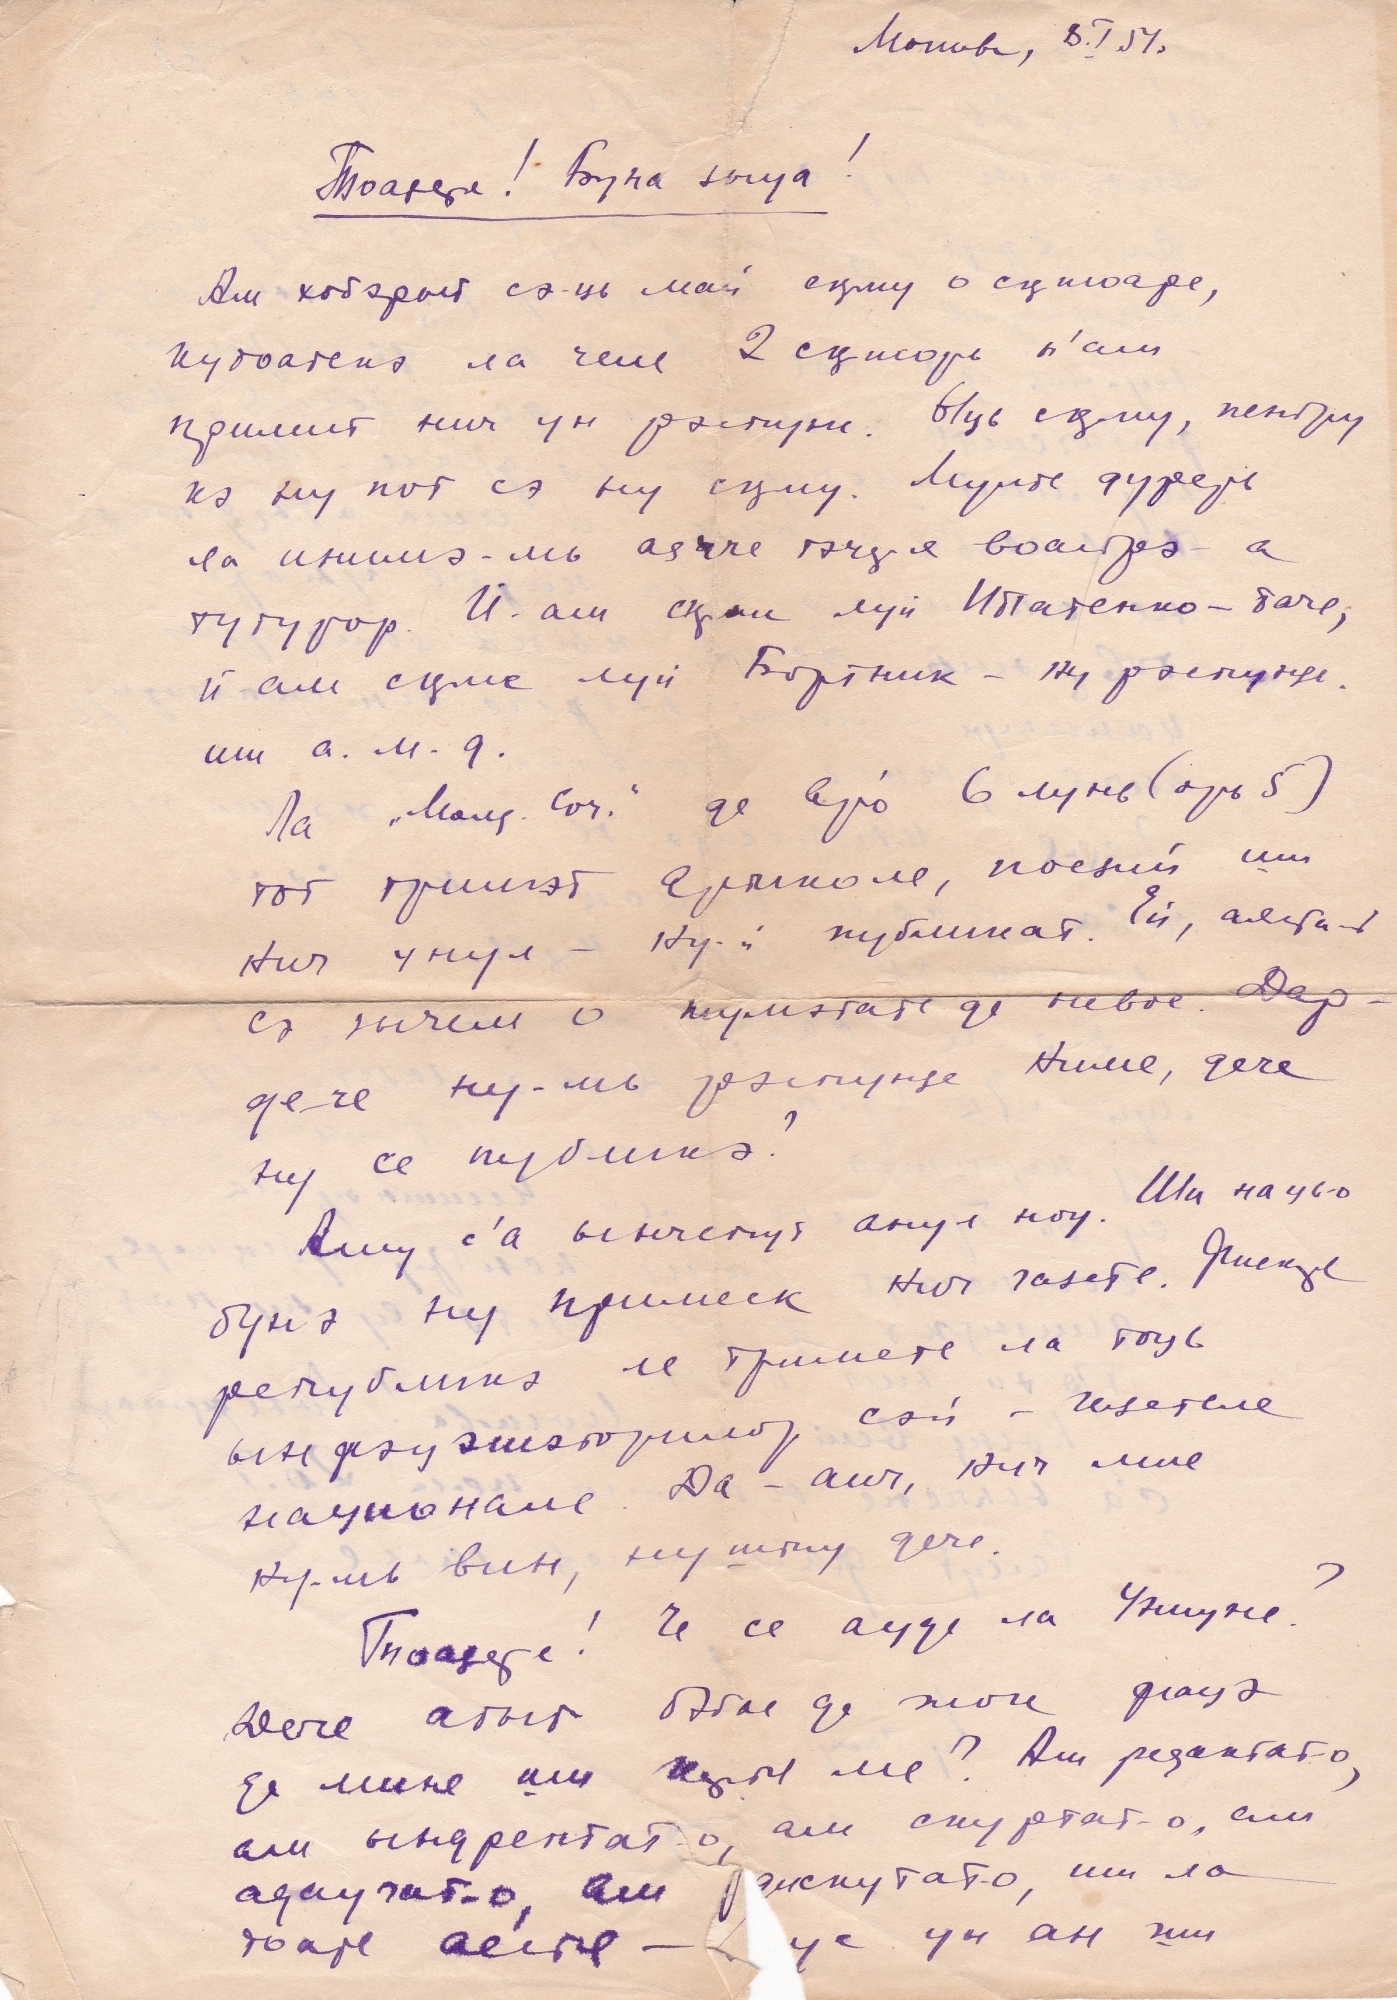 Москва, 8.I 51.
Тоадере! Буна зыуа!
Ам хотэрыт сэ-ць май скриу о скрисоаре,
кутоатекэ ла челе 2 скрисорь н'ам
примит нич ун рэспунс. Ыць скриу, пентру
кэ ну пот сэ ну скриу. Мулте дурерь
ла инимэ-мь адуче тэчеря воастрэ- а
тутурор. Й-ам скрис луй Истатенко- таче,
й-ам скрис луй Бортник - ну рэспунде.
ши а. м. д.
Ла „Молд. Соч." де вр'о 6 лунь (орь 5)
тот тримэт артиколе, поезий ши
нич унул - ну-й публикат. Ей, аяста-й
сэ зычем о жумэтате де невое. Дар-
де-че ну-мь рэспунде ниме, дече
ну се публикэ?
Аму с'а ынчепут анул ноу. Ши нацьо
бунэ ну примеск нич газете. Фиекаре
републикэ ле тримете ла тоць
ынвэцэторилор сэй - газетеле
национале. Да - аич, нич мие
ну-мь вин, ну штиу дече.
Тоадере! Че се ауде ла Униуне?
Дече атыт бэтае де жок фаче
де мине ши карте ме? Ам редактат-о,
ам ындрептат-о, ам скуртат-о, ам
адэугат-о, ам дискутат-о, ши ла
тоате аесте - ун ан ши